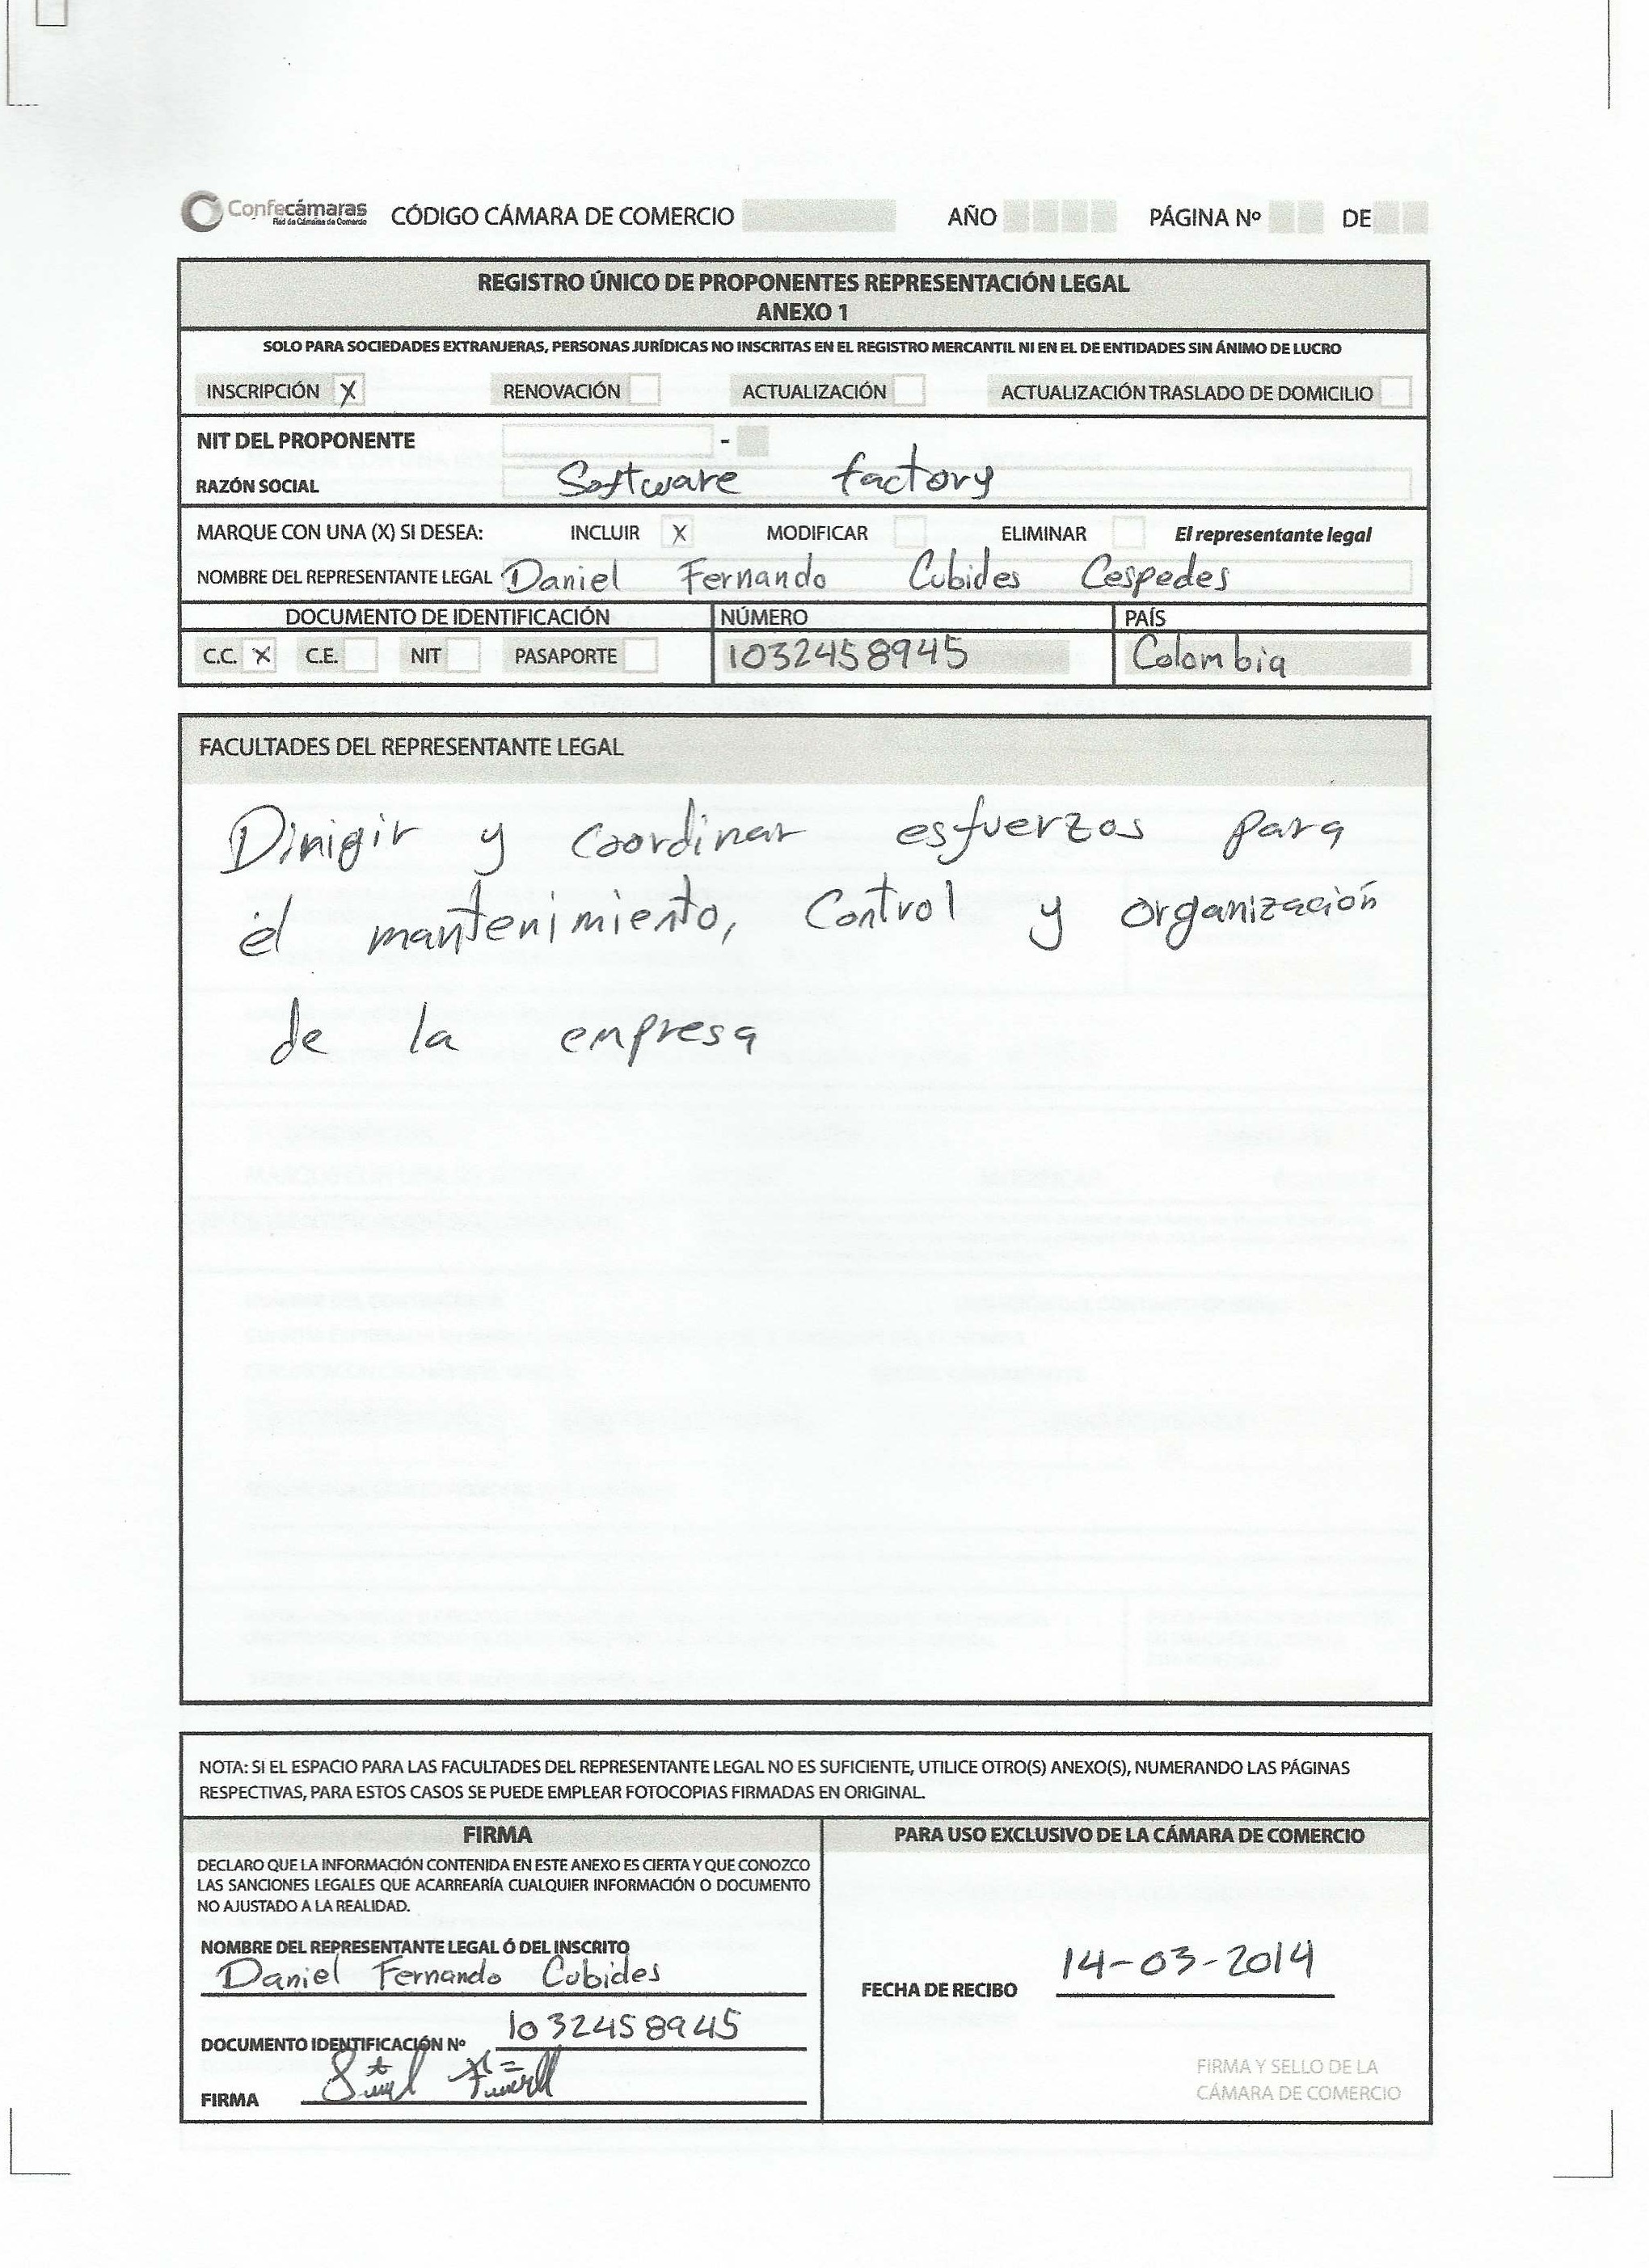 Confecámaras
Red de Cámaras de Comercio
CÓDIGO CÁMARA DE COMERCIO AÑO PÁGINA Nº DE
REGISTRO ÚNICO DE PROPONENTES REPRESENTACIÓN LEGAL
ANEXO 1
SOLO PARA SOCIEDADES EXTRANJERAS, PERSONAS JURÍDICAS NO INSCRITAS EN EL REGISTRO MERCANTIL NI EN EL DE ENTIDADES SIN ÁNIMO DE LUCRO
INSCRIPCIÓN X RENOVACIÓN ACTUALIZACIÓN ACTUALIZACIÓN TRASLADO DE DOMICILIO
NIT DEL PROPONENTE -
RAZÓN SOCIAL Software factory
MARQUE CON UNA (X) SI DESEA: INCLUIR X MODIFICAR ELIMINAR El representante legal
NOMBRE DEL REPRESENTANTE LEGAL Daniel Fernando Cubides Cespedes
DOCUMENTO DE IDENTIFICACIÓN NÚMERO PAÍS
C.C. X C.E. NIT PASAPORTE 1032458945 Colombia
FACULTADES DEL REPRESENTANTE LEGAL
Dinigir y coordinar esfuerzos para
el mantenimiento, Control y organización
de la empresa
NOTA: SI EL ESPACIO PARA LAS FACULTADES DEL REPRESENTANTE LEGAL NO ES SUFICIENTE, UTILICE OTRO(S) ANEXO(S), NUMERANDO LAS PÁGINAS
RESPECTIVAS, PARA ESTOS CASOS SE PUEDE EMPLEAR FOTOCOPIAS FIRMADAS EN ORIGINAL.
FIRMA
DECLARO QUE LA INFORMACIÓN CONTENIDA EN ESTE ANEXO ES CIERTA Y QUE CONOZCO
LAS SANCIONES LEGALES QUE ACARREARÍA CUALQUIER INFORMACIÓN O DOCUMENTO
NO AJUSTADO A LA REALIDAD.
NOMBRE DEL REPRESENTANTE LEGAL Ó DEL INSCRITO
Daniel Fernando Cubides
DOCUMENTO IDENTIFICACIÓN Nº 1032458945
FIRMA
PARA USO EXCLUSIVO DE LA CÁMARA DE COMERCIO
FECHA DE RECIBO 14-03-2014
FIRMA Y SELLO DE LA
CÁMARA DE COMERCIO